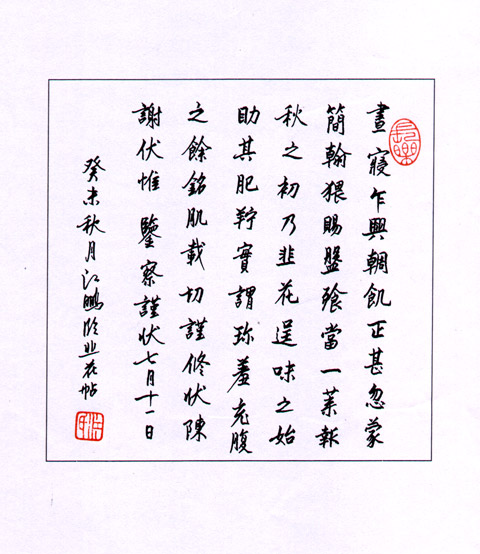 晝寢乍興輖飢正甚忽蒙
簡翰猥賜盤飧當一葉報
秋之初乃韭花逞味之始
助其肥羜實謂珍羞充腹
之餘銘肌載切謹修狀陳
謝伏惟鑒察謹狀七月十一日
癸未秋月江鵬臨韭花帖
長樂